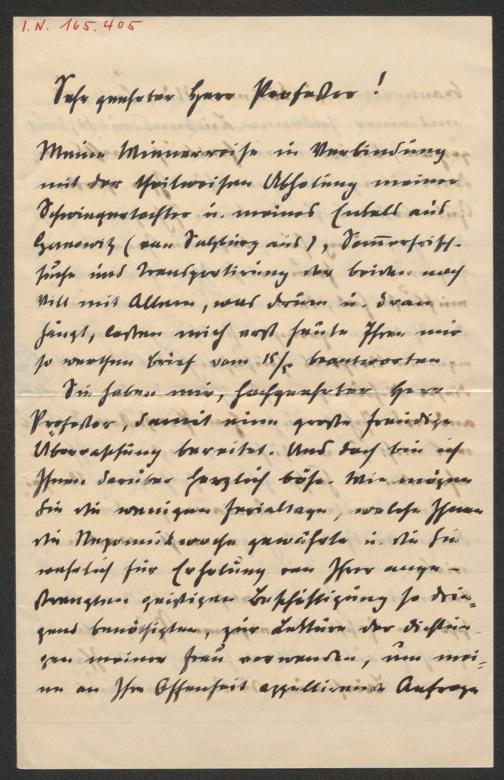 I.N. 165.405
Sehr geehrter Herr Professor!
Meine Wienerreise in Verbindung
mit der theilweisen Abholung meiner
Schwiegertochter u. meines Enkels aus
(von Salzburg aus), Som̄erfrisch-
suche und Transportirung der beiden nach
Vill mit Allem, was drum u. dran
hängt, lassen mich erst heute Ihren mir
so werthen Brief vom 15/5 beantworten.
Sie haben mir, hochgeehrter Herr
Professor, damit eine große freudige
Überraschung bereitet. Und doch bin ich
Ihnen darüber herzlich böse. Wie mögen
Sie die wenigen Ferialtage, welche Ihnen
die Nepomukwoche gewährte u. die Sie
wahrlich für Erholung von Ihrer ange-
strengten geistigen Beschäftigung so drin-
gend benöthigten, zur Lektüre der Dichtun-
gen meiner Frau verwenden, um mei-
ne an Ihre Offenheit appellirende Anfrage